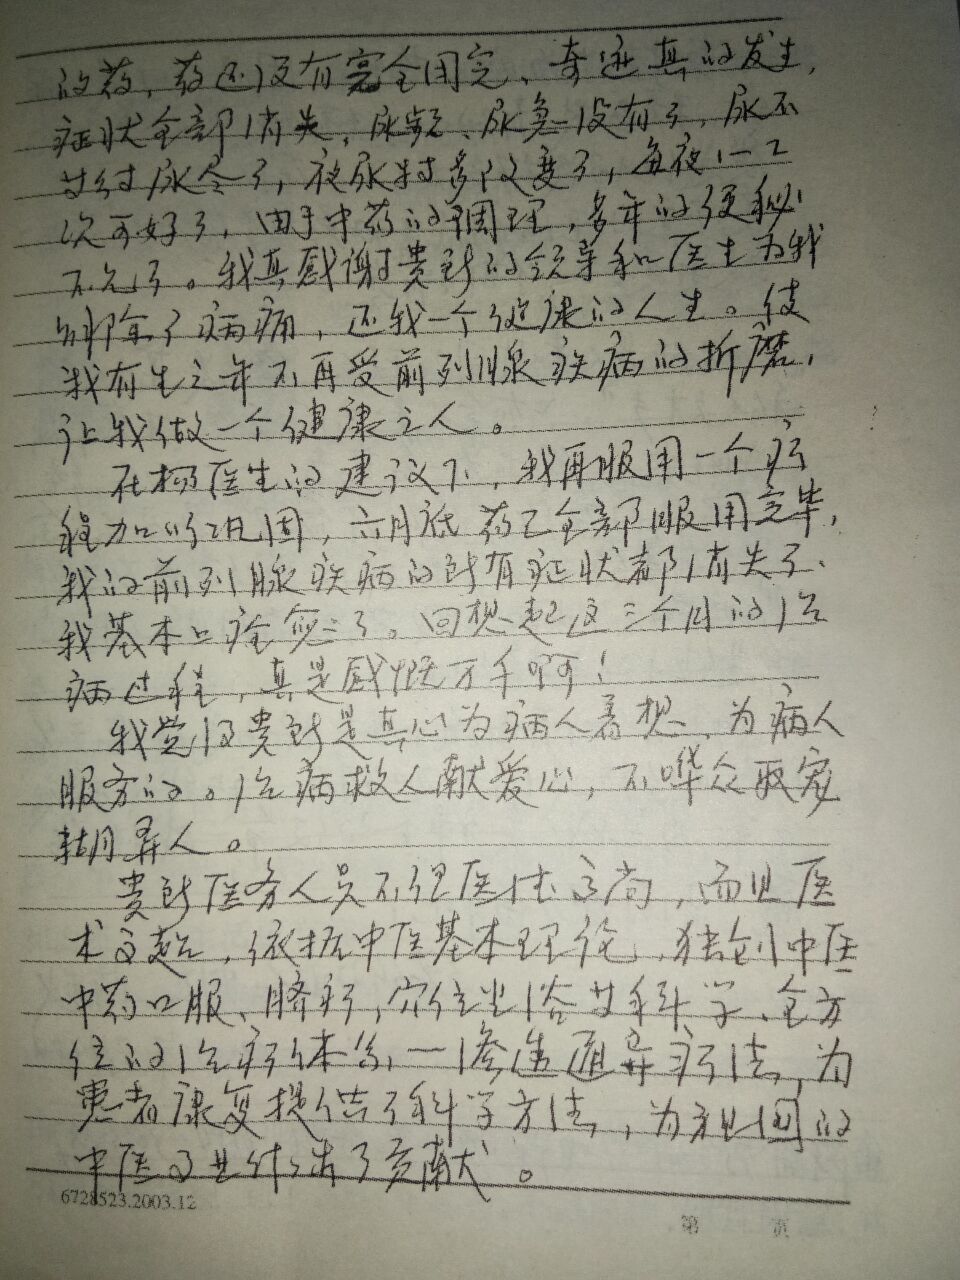 的药，药还没有完全用完、奇迹真的发生，
症状全部消失，尿频、尿急没有了，尿不
尽了，夜尿特多改变了，每夜1—2
次可好了，由于中药的调理，多年的便秘
不见了。我真感谢贵所的领导和医生为我
解除了病痛，还我一个健康的人生。使
我有生之年不再受前列腺疾病的折磨，
让我做一个健康之人。
在杨医生的建议下，我再服用一个疗
程加以巩固，六月底药已全部服用完毕，
我的前列腺疾病的所有症状都消失了、
我基本上痊愈了。回想起这三个月的治
病过程，真是感慨万千啊！
我觉得贵所是真心为病人着想、为病人
服务的。治病救人献爱心，不哗众取宠
糊弄人。
贵所医务人员不但医德高尚，而且医
术高超，依据中医基本理论，独创中医
中药口服、脐疗，穴位坐浴等科学、全方
位的治疗体系，一渗透通弃疗法，为
患者康复提供了科学方法，为祖国的
中医事业作出了贡献。
6728523.2003.12
第 页